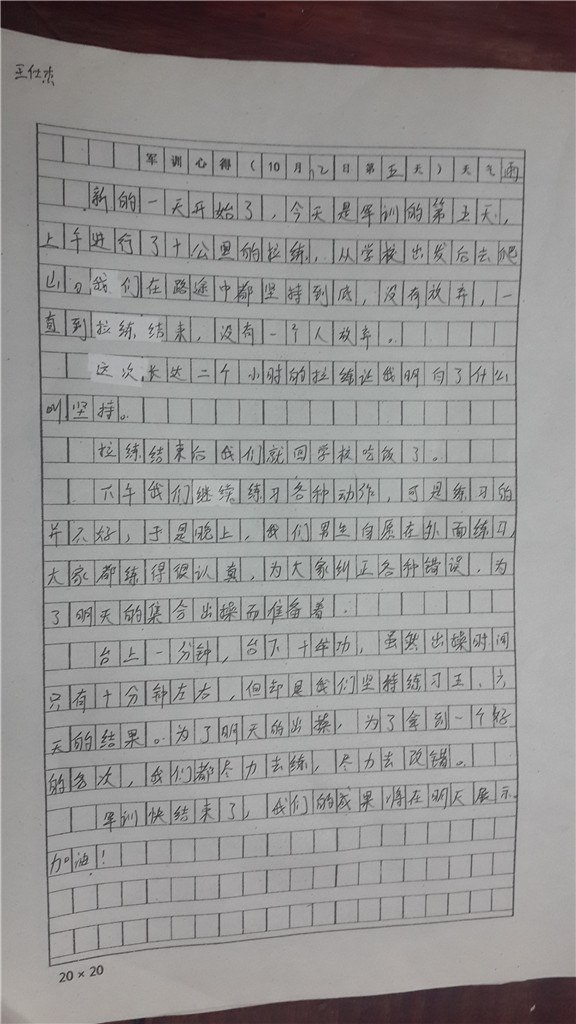 王仕杰
军训心得(10月12日第五天)天气雨
新的一天开始了,今天是军训的第五天,
上午进行了十公里的拉练,从学校出发后去爬
山。我们在路途中都坚持到底,没有放弃,一
直到拉练结束,没有一个人放弃。
这次长达二个小时的拉练让我明白了什么
叫坚持。
拉练结束后我们就回学校吃饭了。
下午我们继续练习各种动作,可是练习的
并不好,于是晚上,我们男生自愿在外面练习,
大家都练得很认真,为大家纠正各种错误,为
了明天的集合出操而准备着.
台上一分钟,台下十年功,虽然出操时间
只有十分钟左右,但却是我们坚持练习五、六
天的结果。为了明天的出操,为了拿到一个好
的名次,我们都尽力去练,尽力去改错。
军训快结束了,我们的成果将在明天展示.
加油!
20×20